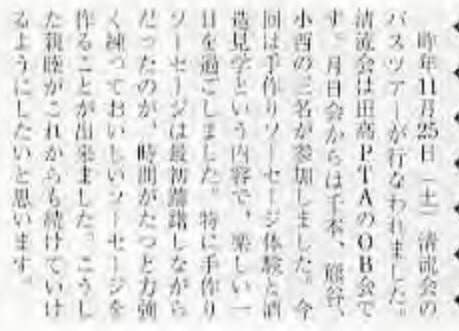 昨年11月25日（土）清流会の
バスツアーが行なわれました。
清流会は田高PTAのOB会で
す。月日会からは千本、熊谷、
小西の三名が参加しました。今
回は手作りソーセージ体験と酒
造見学という内容で、楽しい一
日を過ごしました。特に手作り
ソーセージは最初躊躇しながら
だったのが、時間がたつと力強
く練っておいしいソーセージを
作ることが出来ました。こうし
た親睦がこれからも続けていけ
るようにしたいと思います。